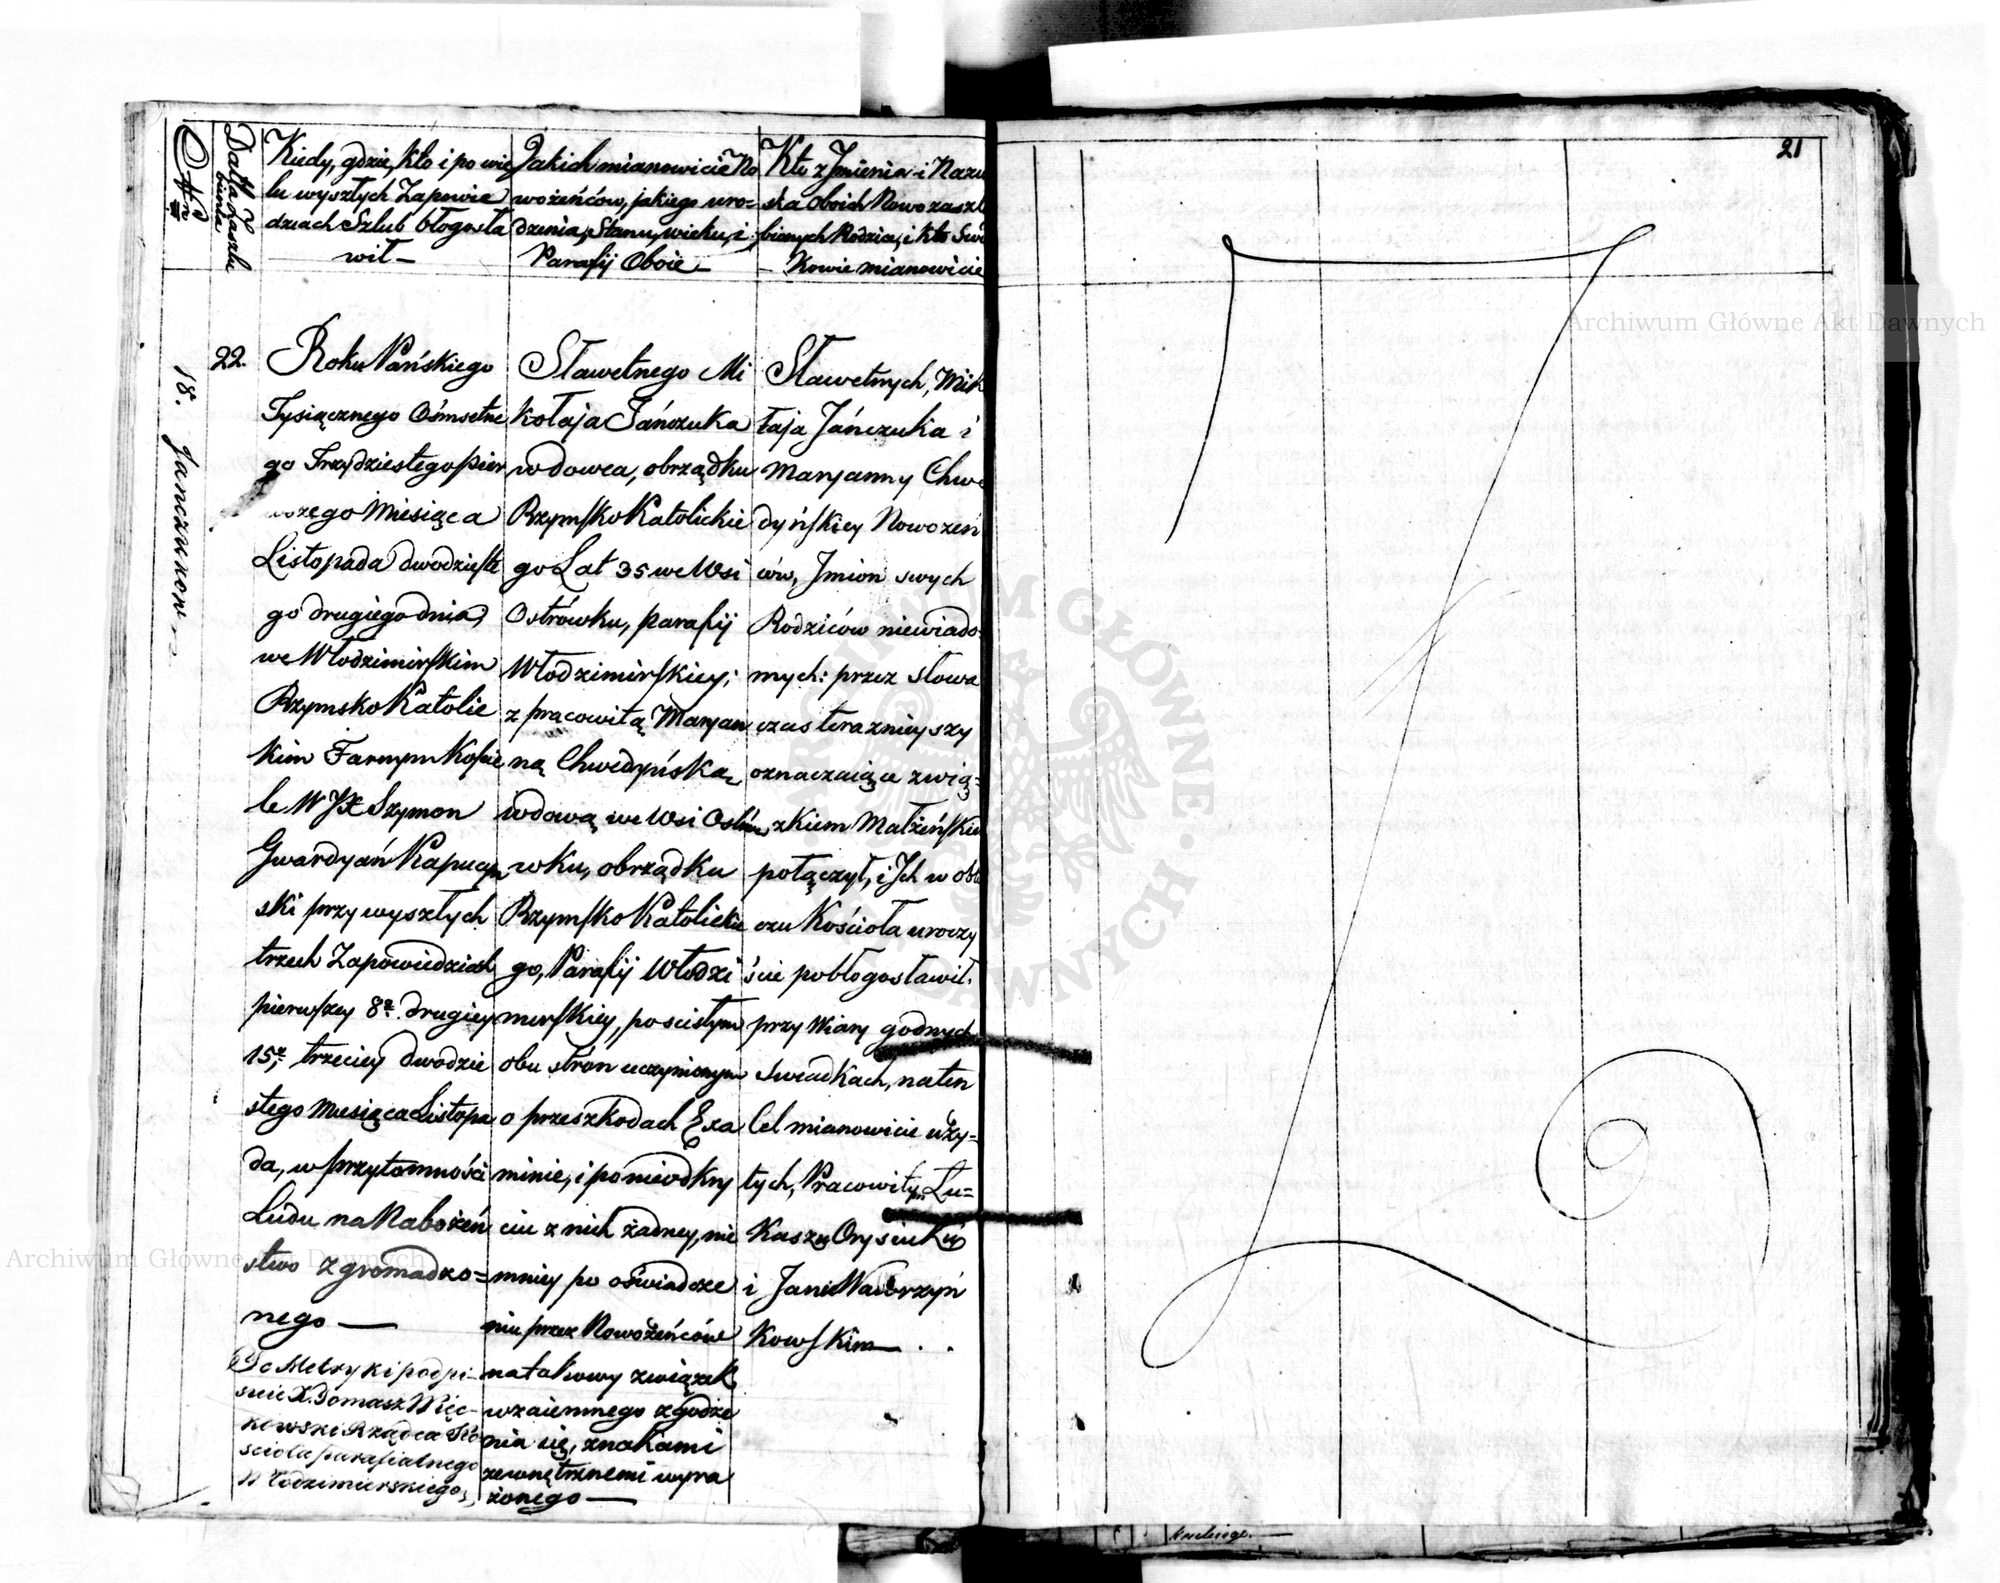 Akt
Data Szlu
bienia
Kiedy, gdzie, kto i po wie
lu wyszłych Zapowie
dziach Szlub błogosła
wił —
Jakich mianowicie No
wożeńców, jakiego uro-
dzenia, Stanu, wieku, i
Parafij Oboie —
Kto z Jmienia i Nazw
ska oboich Nowozaszl
bionych Rodzice, i kto Swi
— Kowie mianowicie
18.
Janczukow
22.
Roku Pańskiego
Tysiącznego Ośmsetne
go Trzydziestego pier
wszego Miesiąca
Listopada dwódzieste
go drugiego dnia,
we Włodzimirskim
Rzymsko Katolic
kim Farnym Koście
le W JX Szymon
Gwardyań Kapucyń
ski przy wyszłych
trzech Zapowiedziach
pierwszey 8ª drugiey
15ª, trzeciey dwodzie
stego Miesiąca Listopa
da, w przytomności
Ludu na Nabożeń
stwo zgromadzo=
nego —
Do Metryki podpi-
suie X. Tomasz Więc-
kowski Rządca Ko-
scioła parafialnego
Włodzimierskiego,
Sławetnego Mi
kołaja Jańczuka
wdowca, obrządku
Rzymsko Katolickie
go Lat 35 we Wsi
Ostrówku, parafij
Włodzimirskiey;
z pracowitą Maryan
ną Chwedyńską,
wdową we Wsi Ostró
wku, obrządku
Rzymsko Katolickie
go, Parafij Włodzi
mirskiey, po scisłym
obu strón uczynionym
o przeszkodach Exa
minie, i po nieodkry
ciu z nich żadney, nie
mniey po oświadcze
niu przez Nowożeńców
na takowy związek
wzaiemnego zgodze
nia się, znakami
zewnętrznemi wyra
żonego —
Sławetnych, Mik
łaja Jańczuka i
Maryanny Chwe
dyńskiey Nowożeń
ców, Jmion swych
Rodziców niewiado-
mych: przez słowa
czas teraznieyszy
oznaczaiące zwią=
zkiem Małżeńskim
połączył, i Jch w obli
czu Kościoła uroczy
ście pobłogosławił.
przy Wiary godnych
Swiadkach, na ten
Cel mianowicie uży=
tych, Pracowitym Łu=
kaszu Orysiuku
i Janu Wawrzyń
kowskim — . .
21
Archiwum Główne Akt Dawnych
Archiwum Główne Akt Dawnych
ARCHIWUM GŁÓWNE AKT DAWNYCH